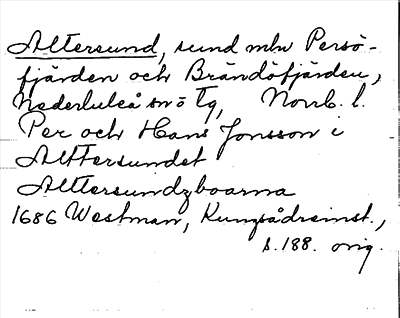 Altersund, sund mln Persö-
fjärden och Brändöfjärden,
Nederluleå sn ö Tg, Norrb. l.
Per och Hans Jonsson i
Alttersundet
Alttersundzboarna
1686 Westman, Kungsådreinst.,
s. 188. orig.